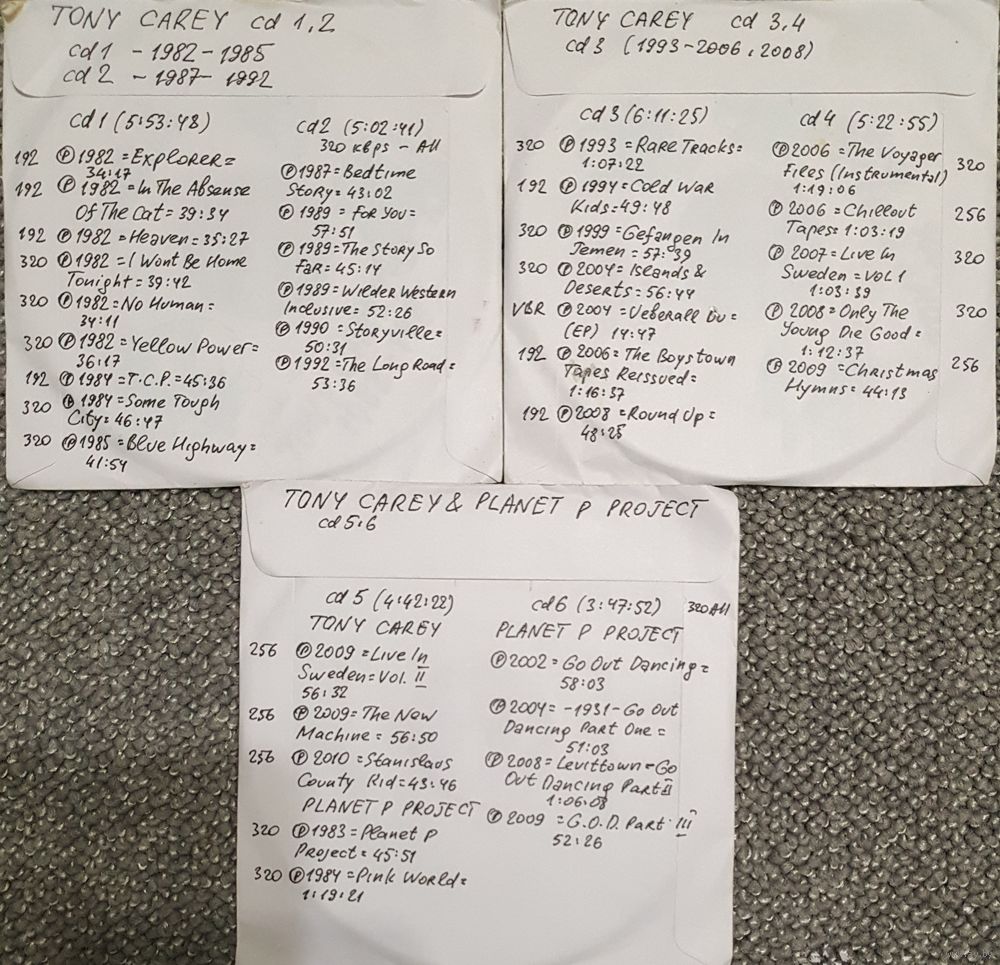 TONY CAREY cd 1,2
cd 1 - 1982 - 1985
cd 2 - 1987 - 1992
cd 1 (5:53:48)
192 Ⓟ 1982 = Explorer =
34:17
192 Ⓟ 1982 = In The Absense
Of The Cat = 39:34
192 Ⓟ 1982 = Heaven = 35:27
320 Ⓟ 1982 = I Wont Be Home
Tonight = 39:42
320 Ⓟ 1982 = No Human =
34:11
320 Ⓟ 1982 = Yellow Power =
36:17
192 Ⓟ 1984 = T.C.P. = 45:36
320 Ⓟ 1984 = Some Tough
City = 46:47
320 Ⓟ 1985 = Blue Highway =
41:54
cd 2 (5:02:41)
320 kbps - All
Ⓟ 1987 = Bedtime
Story = 43:02
Ⓟ 1989 = For You =
57:51
Ⓟ 1989 = The Story So
Far = 45:14
Ⓟ 1989 = Wilder Western
Inclusive = 52:26
Ⓟ 1990 = Storyville =
50:31
Ⓟ 1992 = The Long Road =
53:36
TONY CAREY cd 3,4
cd 3 (1993-2006, 2008)
cd 3 (6:11:25)
320 Ⓟ 1993 = Rare Tracks =
1:07:22
192 Ⓟ 1994 = Cold War
Kids = 49:48
320 Ⓟ 1999 = Gefangen In
Jemen = 57:39
320 Ⓟ 2004 = Islands &
Deserts = 56:44
VBR Ⓟ 2004 = Ueberall Du =
(EP) 14:47
192 Ⓟ 2006 = The Boystown
Tapes Reissued =
1:16:37
192 Ⓟ 2008 = Round Up =
48:25
cd 4 (5:22:55)
Ⓟ 2006 = The Voyager
Files (Instrumental) 320
1:19:06
Ⓟ 2006 = Chillout 256
Tapes = 1:03:19
Ⓟ 2007 = Live In 320
Sweden = Vol 1
1:03:39
Ⓟ 2008 = Only The 320
Young Die Good =
1:12:37
Ⓟ 2009 = Christmas 256
Hymns = 44:13
TONY CAREY & PLANET P PROJECT
cd 5,6
cd 5 (4:42:22)
TONY CAREY
256 Ⓟ 2009 = Live In
Sweden = Vol. II
56:32
256 Ⓟ 2009 = The New
Machine = 56:50
256 Ⓟ 2010 = Stanislaus
County Kid = 43:46
PLANET P PROJECT
320 Ⓟ 1983 = Planet P
Project = 45:51
320 Ⓟ 1984 = Pink World =
1:19:21
cd 6 (3:47:52) 320 All
PLANET P PROJECT
Ⓟ 2002 = Go Out Dancing =
58:03
Ⓟ 2004 = -1931- Go Out
Dancing Part One =
51:03
Ⓟ 2008 = Levittown = Go
Out Dancing Part II
1:06:08
Ⓟ 2009 = G.O.D. Part III
52:26